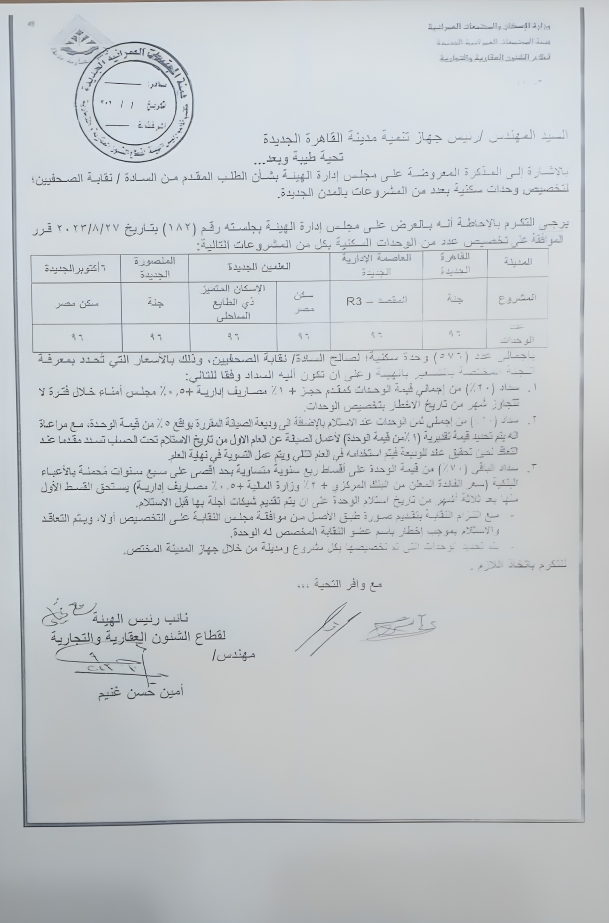 وزارة الإسكان والمجتمعات العمرانية
هيئة المجتمعات العمرانية الجديدة
قطاع الشئون العقارية والتجارية
هيئة المجتمعات العمرانية الجديدة
صادر:
تاريخ: / /
المرفقات:
السيد المهندس /رئيس جهاز تنمية مدينة القاهرة الجديدة
تحية طيبة وبعد...
بالاشارة إلى المذكرة المعروضة على مجلس إدارة الهيئة بشأن الطلب المقدم من السادة / نقابة الصحفيين؛
لتخصيص وحدات سكنية بعدد من المشروعات بالمدن الجديدة.
يرجى التكرم بالاحاطة أنه بالعرض على مجلس إدارة الهيئة بجلسته رقم (١٨٢) بتاريخ ٢٠٢٣/٨/٢٧ قرر
الموافقة على تخصيص عدد من الوحدات السكنية بكل من المشروعات التالية:
المدينة القاهرة الجديدة العاصمة الإدارية الجديدة العلمين الجديدة المنصورة الجديدة ٦أكتوبر الجديدة
المشروع جنة المقصد – R3 سكن مصر الإسكان المتميز ذي الطابع الساحلى جنة سكن مصر
عدد الوحدات ٩٦ ٩٦ ٩٦ ٩٦ ٩٦ ٩٦
بإجمالى عدد (٥٧٦) وحدة سكنية؛ لصالح السادة/ نقابة الصحفيين، وذلك بالأسعار التي تُحدد بمعرفة
اللجنة المختصة بالتسعير بالهيئة وعلى أن تكون آلية السداد وفقا للتالي:
١. سداد (٢٠٪) من إجمالي قيمة الوحدات كمقدم حجز + ١٪ مصاريف إدارية +٠,٥٪ مجلس أمناء خلال فترة لا
تتجاوز شهر من تاريخ الاخطار بتخصيص الوحدات.
٢. سداد من إجملى ثمن الوحدات عند الاستلام بالإضافة الى وديعة الصيانة المقررة بواقع ٥٪ من قيمة الوحدة، مع مراعاة
أنه يتم تحديد قيمة تقديرية (١٪من قيمة الوحدة) لأعمال الصيانة عن العام الأول من تاريخ الاستلام تحت الحساب تسدد مقدما عند
التعاقد لحين تحقيق عائد للوديعة فيتم استخدامه في العام التالي ويتم عمل التسوية في نهاية العام.
٣. سداد الباقي (٧٠٪) من قيمة الوحدة على أقساط ربع سنوية متساوية بحد أقصى على سبع سنوات مُحملة بالأعباء
البنكية (سعر الفائدة المعلن من البنك المركزي + ٢٪ وزارة المالية +٠,٥٪ مصاريف إدارية) يستحق القسط الأول
منها بعد ثلاثة أشهر من تاريخ استلام الوحدة على ان يتم تقديم شيكات آجلة بها قبل الاستلام.
- مع التزام النقابة بتقديم صورة طبق الأصل من موافقة مجلس النقابة على التخصيص أولا، ويتم التعاقد
والاستلام بموجب إخطار باسم عضو النقابة المخصص له الوحدة.
الوحدات التى تم تخصيصها بكل مشروع ومدينة من خلال جهاز المدينة المختص.
للتكرم باتخاذ اللازم .
مع وافر التحية ...
نائب رئيس الهيئة
لقطاع الشئون العقارية والتجارية
مهندس/
أمين حسن غنيم